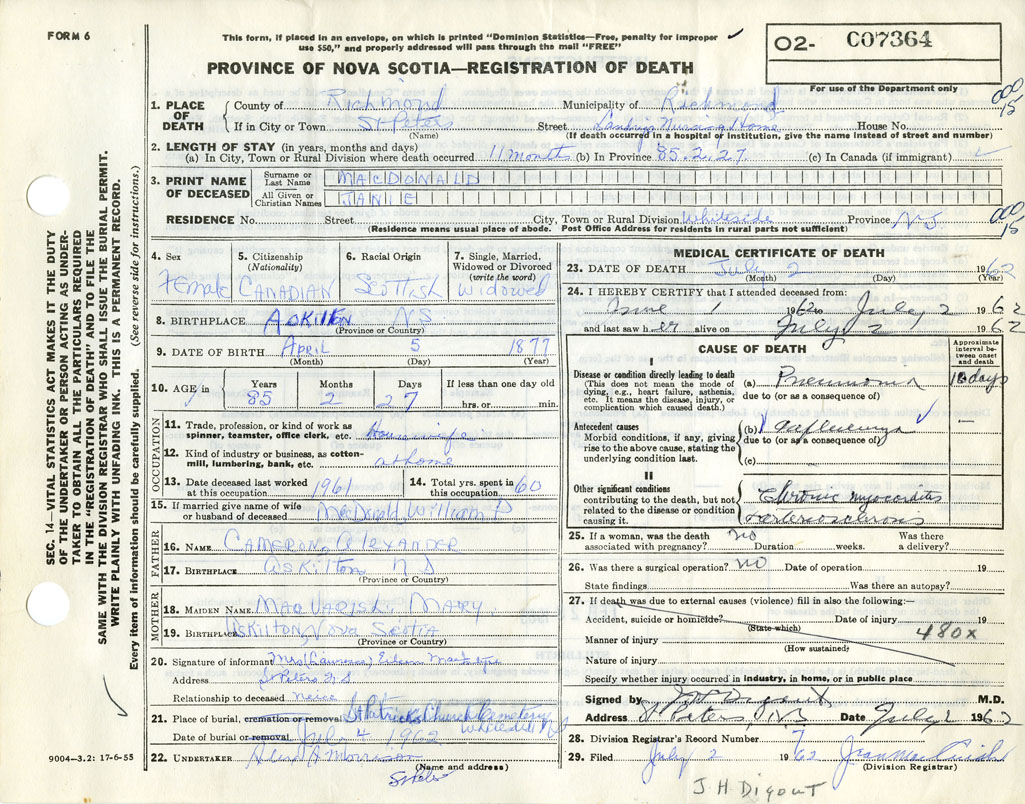 FORM 6
This form, if placed in an envelope, on which is printed "Dominion Statistics—Free, penalty for improper
use $50," and properly addressed will pass through the mail "FREE"
O2- C07364
For use of the Department only
PROVINCE OF NOVA SCOTIA—REGISTRATION OF DEATH
SEC. 14—VITAL STATISTICS ACT MAKES IT THE DUTY
OF THE UNDERTAKER OR PERSON ACTING AS UNDER-
TAKER TO OBTAIN ALL THE PARTICULARS REQUIRED
IN THE "REGISTRATION OF DEATH" AND TO FILE THE
SAME WITH THE DIVISION REGISTRAR WHO SHALL ISSUE THE BURIAL PERMIT.
WRITE PLAINLY WITH UNFADING INK. THIS IS A PERMANENT RECORD.
Every item of information should be carefully supplied. (See reverse side for instructions.)
1. PLACE OF DEATH County of Richmond Municipality of Richmond
If in City or Town St Peters Street Landrys Nursing Home House No.
(Name) (If death occurred in a hospital or institution, give the name instead of street and number)
000/15
2. LENGTH OF STAY (in years, months and days)
(a) In City, Town or Rural Division where death occurred 11 months (b) In Province 85.2.27 (c) In Canada (if immigrant)
3. PRINT NAME OF DECEASED
Surname or Last Name MACDONALD
All Given or Christian Names JANIE
RESIDENCE No. Street City, Town or Rural Division Whiteside Province NS
(Residence means usual place of abode. Post Office Address for residents in rural parts not sufficient)
000/15
4. Sex Female
5. Citizenship (Nationality) CANADIAN
6. Racial Origin Scottish
7. Single, Married, Widowed or Divorced (write the word) Widowed
8. BIRTHPLACE Askilton NS
(Province or Country)
9. DATE OF BIRTH April 5 1877
(Month) (Day) (Year)
10. AGE in Years 85 Months 2 Days 27 If less than one day old hrs. or min.
OCCUPATION
11. Trade, profession, or kind of work as
spinner, teamster, office clerk, etc. Housewife
12. Kind of industry or business, as cotton-
mill, lumbering, bank, etc. at home
13. Date deceased last worked at this occupation 1961 14. Total yrs. spent in this occupation 60
15. If married give name of wife
or husband of deceased MacDonald William
FATHER
16. NAME CAMERON, Alexander
17. BIRTHPLACE Askilton N S
(Province or Country)
MOTHER
18. MAIDEN NAME MacVarish, Mary
19. BIRTHPLACE Askilton, Nova Scotia
(Province or Country)
20. Signature of informant Mrs (Laurence)
Address St Peters N.S.
Relationship to deceased neice
21. Place of burial, cremation or removal St Patricks Church Cemetery
Whiteside
Date of burial or removal July 4 1962
22. UNDERTAKER Morrison
(Name and address)
St Peters
9004—3.2: 17-6-55
MEDICAL CERTIFICATE OF DEATH
23. DATE OF DEATH July 2 1962
(Month) (Day) (Year)
24. I HEREBY CERTIFY that I attended deceased from:
June 1 1962 to July 2 1962
and last saw her alive on July 2 1962
CAUSE OF DEATH
Approximate interval between onset and death
I
Disease or condition directly leading to death
(This does not mean the mode of
dying, e.g., heart failure, asthenia,
etc. It means the disease, injury, or
complication which caused death.)
(a) Pneumonia 10 days
due to (or as a consequence of)
Antecedent causes
Morbid conditions, if any, giving
rise to the above cause, stating the
underlying condition last.
(b) Influenza —
due to (or as a consequence of)
(c)
II
Other significant conditions
contributing to the death, but not
related to the disease or condition
causing it.
Chronic myocarditis
arteriosclerosis
25. If a woman, was the death no Was there
associated with pregnancy? Duration weeks. a delivery?
26. Was there a surgical operation? no Date of operation 19
State findings Was there an autopsy?
27. If death was due to external causes (violence) fill in also the following:—
Accident, suicide or homicide? Date of injury 19
(State which)
480x
Manner of injury
(How sustained)
Nature of injury
Specify whether injury occurred in industry, in home, or in public place
Signed by J H Digout M.D.
Address St Peters NS Date July 2 1962
28. Division Registrar's Record Number 7
29. Filed July 2 1962
(Division Registrar)
J H Digout